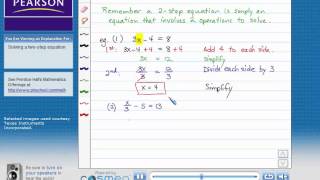 PEARSON
You Are Viewing an Explanation For:
Solving a two-step equation
See Prentice Hall's Mathematics
Offerings at:
PHSchool.com
Selected images used courtesy of
Texas Instruments
Incorporated.
Be sure to turn on
your speakers
Remember a 2-step equation is simply an
equation that involves 2 operations to solve.
eg. (1) 3x - 4 = 8
1st. 3x - 4 + 4 = 8 + 4 Add 4 to each side.
3x = 12 Simplify
2nd. 3x/3 = 12/3 Divide each side by 3
x = 4 Simplify
(2) x/3 - 5 = 13
Powered by
COSMEO